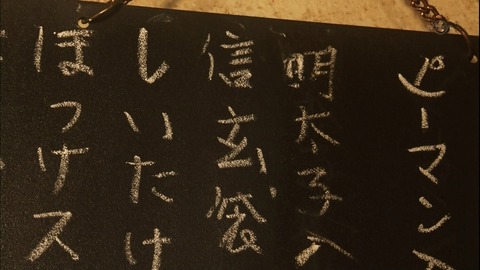 ピーマン
明太子
信玄袋
しいたけ
ほっけス